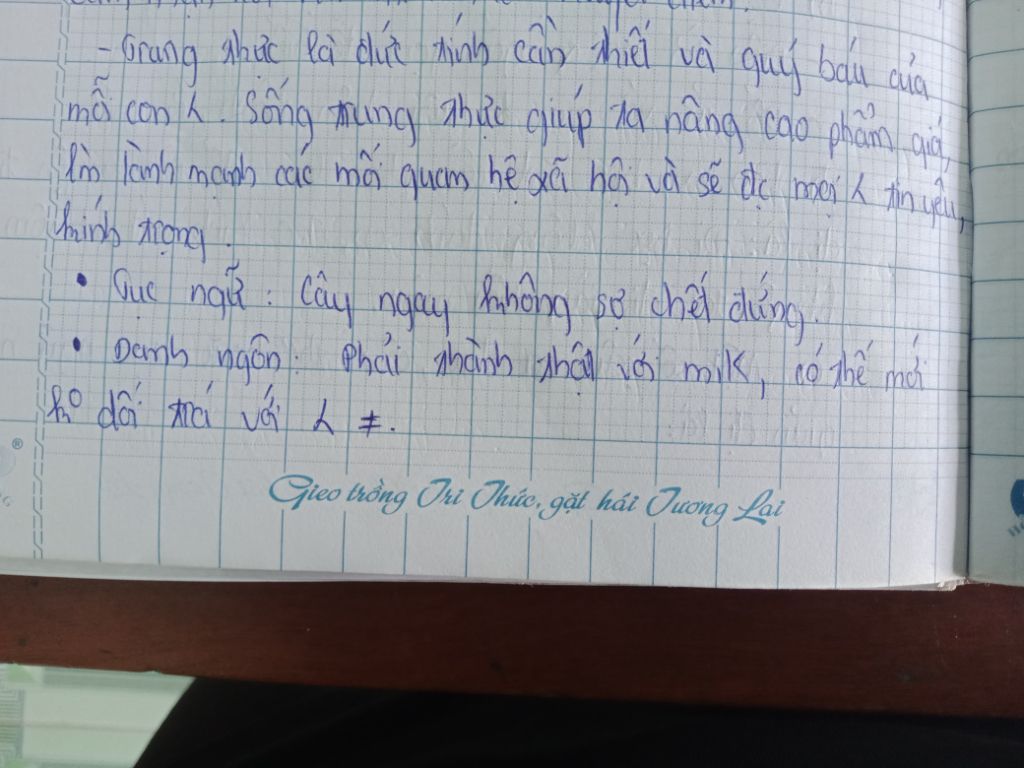 - Trung thực là đức tính cần thiết và quý báu của
mỗi con λ. Sống trung thực giúp ta nâng cao phẩm giá,
làm lành mạnh các mối quan hệ xã hội và sẽ đc mọi λ tin yêu,
kính trọng.
• Tục ngữ: Cây ngay không sợ chết đứng.
• Danh ngôn: Phải thành thật với mik, có thế mới
ko dối trá với λ ≠.
Gieo trồng Tri Thức, gặt hái Tương Lai